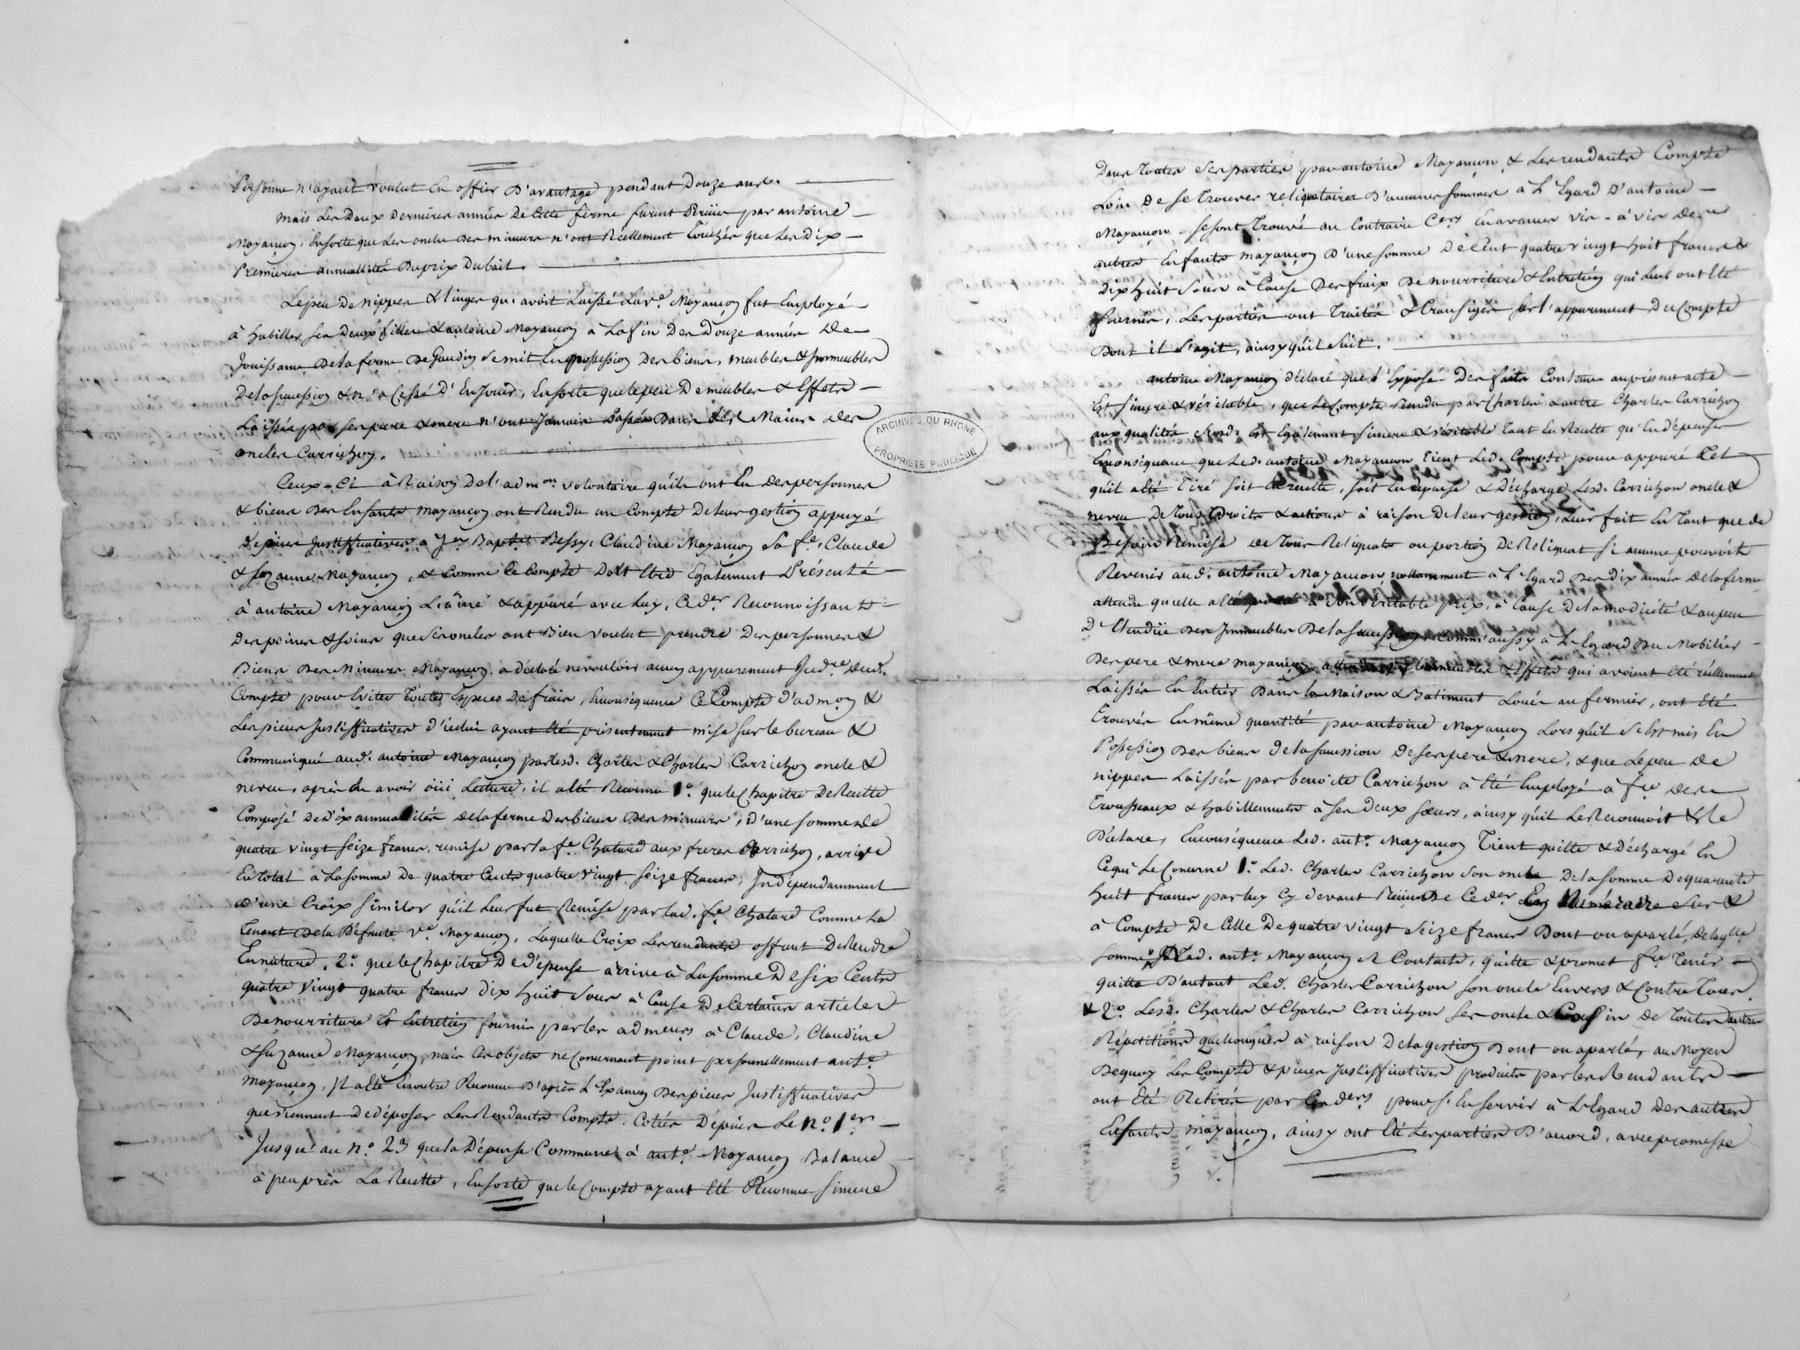 Personne n'ayant voulut en offrir d'avantage pendant Douze ans.
mais Les Deux dernieres années de Cette ferme furent Perçües par antoine
Mayançon, Ensorte que Les oncles des mineurs n'ont Réellement touchés que Les Dix
Premieres annuallités Du prix Du bail.
Le peu De nippes & linges qu'avoit Laissé La ve Mayançon fut Employé
à habiller ses deux filles & antoine Mayançon à La fin Des Douze années De
Jouissance De la ferme De Gaudin se mit En possession Des biens, meubles & immeubles
De la succession & n'a Cessé D'En Jouir, Ensorte que le peu De meubles & Effets
Laissés par ses pere & mere n'ont Jamais Passés Dans Les Mains des
oncles Carrichon.
Ceux-Ci à Raison De l'admon volontaire qu'ils ont Eu des personnes
& biens des Enfants Mayançon ont Rendu un Compte De leur gestion appuyé
de pieces Justifficatives à Jean Baptiste Bessy, Claudine Mayançon Sa fe, Claude
& Suzanne Mayançon, & Comme Ce Compte Doit Etre Egalement Présenté
à antoine Mayançon L'ainé & appuré avec Luy, Ce der Reconnoissant
des peines & soins que ses oncles ont Bien voulut prendre Des personnes &
Biens Des Mineurs Mayançon, a déclaré ne vouloir aucun appurement Judre Dud.
Compte pour Eviter Toutes Especes De frais, En conséquence Ce Compte d'admon &
Les pieces Justifficatives d'icelui ayant été présentement mises sur le bureau &
Communiqué aud. antoine Mayançon par lesd. Charles & Charles Carrichon oncle &
neveu, après En avoir oüi Lecture, il a été Reconnu 1° que le Chapitre De Recette
Composé de dix annuallités de la ferme des biens Des mineurs, d'une somme de
quatre vingt seize francs, remise par la fe Chatard aux freres Carrichon, arrive
En total à La somme De quatre Cents quatre vingt seize francs, Indépendamment
D'une Croix similor qu'il Leur fut Remise par lad. fe Chatard Comme La
Tenant de la Défunte ve Mayançon, Laquelle Croix Les rendants offrent De Rendre
En nature. 2° que le Chapitre De Dépense arrive à La somme De six Cents
quatre vingt quatre francs dix huit Sous à Cause De Certains articles
De nourriture Et Entretien fournis par les admeurs à Claude, Claudine
& Suzanne Mayançon, mais Ces objets ne Concernant point personnellement ante
Mayançon, Il a été Ensuite Reconnu D'après L'Examen Des pieces Justifficatives
que viennent De déposer Les Rendants Compte, Cotées Depuis Le n° 1er
Jusqu'au n° 23 que la Dépense Commune à ante Mayançon Balance
à peu près La Recette, Ensorte que le Compte ayant Eté Reconnu sincere
Dans Toutes Ses parties par antoine Mayançon, & Les rendants Compte
Loin de se Trouver reliquataires D'aucunes sommes à L'Egard D'antoine
Mayançon se sont Trouvé au Contraire Cers En avances vis-à-vis Des
autres Enfants Mayançon D'une somme De Cent quatre vingt huit francs
Dix huit Sous à Cause Des frais De nourriture & Entretien qui Leur ont Eté
fournis, Les parties ont Traités & transigés sur l'appurement Du Compte
Dont il S'agit, ainsy qu'il suit.
antoine Mayançon déclare que L'Exposé Des faits Contenu au présent acte
Est sincere & véritable, que Le Compte Rendu par Charles & autre Charles Carrichon
aux qualités Susd. Est Egalement sincere & véritable Tant En Recette qu'En dépense
En conséquence que Led. antoine Mayançon Tient Led. Compte pour appuré Tel
qu'il a été Tiré soit En recette, soit En dépense & Décharge Lesd. Carrichon oncle &
neveu De Tous Droits & actions à raison De leur gestion, leur fait En Tant que de
Besoin Remise de Tous Reliquats ou portion De Reliquat si aucune pouvoit
Revenir aud. antoine Mayançon, nottamment à L'Egard Des Dix années De la ferme
attendu qu'elle a été à son véritable prix, à Cause De la modicité & au peu
D'Etendüe Des Immeubles De la succession, Comm'aussy à L'Egard Du Mobilier
Des pere & mere Mayançon, meubles & Effets qui avoient Eté réellement
Laissés En Entier Dans la Maison & Batiment Loués au fermier, ont été
Trouvés En même quantité par antoine Mayançon Lorsqu'il s'est mis En
Possession Des biens de la succession De ses pere & mere, & que Le peu De
nippes Laissés par benoite Carrichon a été Employé à fre Des
Trousseaux & habillements à ses Deux Sœurs, ainsy qu'il Le Reconnoit & Le
Déclare, En conséquence Led. ante Mayançon Tient quitte & déchargé En
Ce qui Le Concerne 1° Led. Charles Carrichon Son oncle De la somme De quarante
huit francs par luy Cy devant Reçüe De Ce der En Numéraire Sur &
à Compte De Celle De quatre vingt Seize francs Dont on a parlé, De laqlle
somme Led. ante Mayançon se Contente, quitte & promet fre Tenir
quitte D'autant Led. Charles Carrichon Son oncle Envers & Contre Tous.
2° Lesd. Charles & Charles Carrichon Ses oncle & Cousin De Toutes autres
Répétitions quelconques à raison De la gestion Dont on a parlé, au Moyen
De quoy Les Compte & pieces Justifficatives produits par les Rendants
ont Eté Retirés par Ces ders pour s'En servir à L'Egard Des autres
Enfants Mayançon, ainsy ont Eté Les parties D'accord, avec promesse
ARCHIVES DU RHONE
PROPRIETE PUBLIQUE